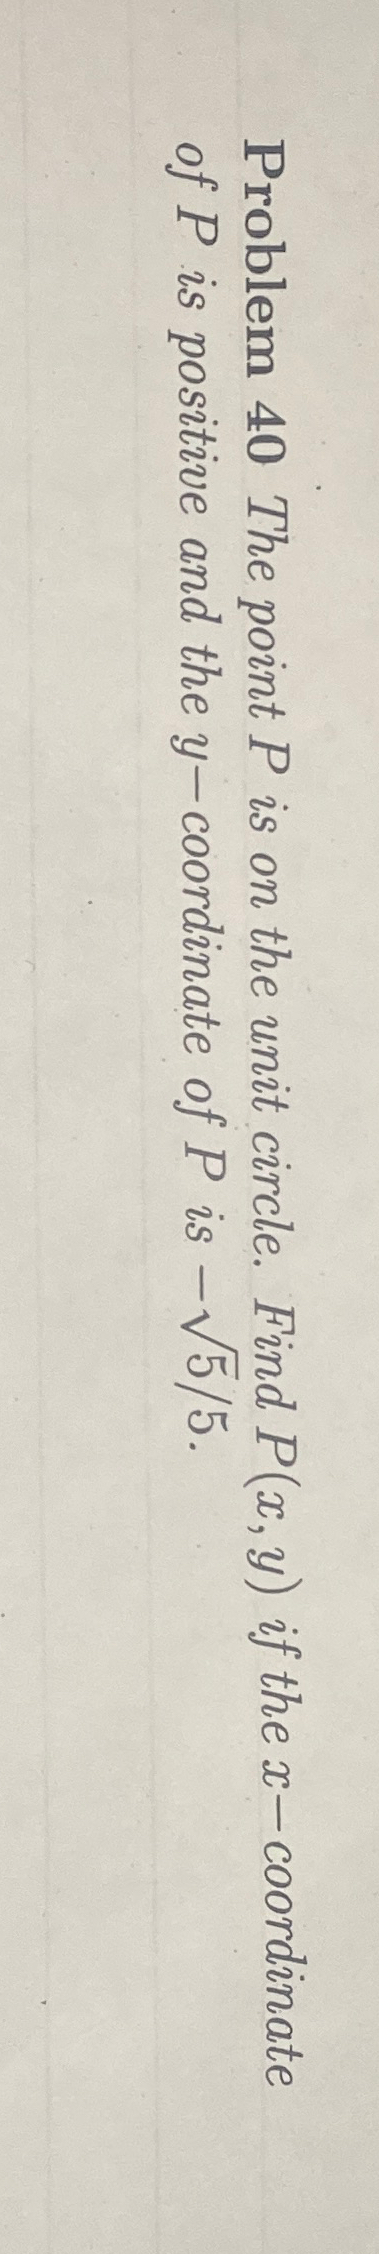 Problem 40 The point P is on the unit circle. Find P(x, y) if the x−coordinate
of P is positive and the y−coordinate of P is −√5/5.